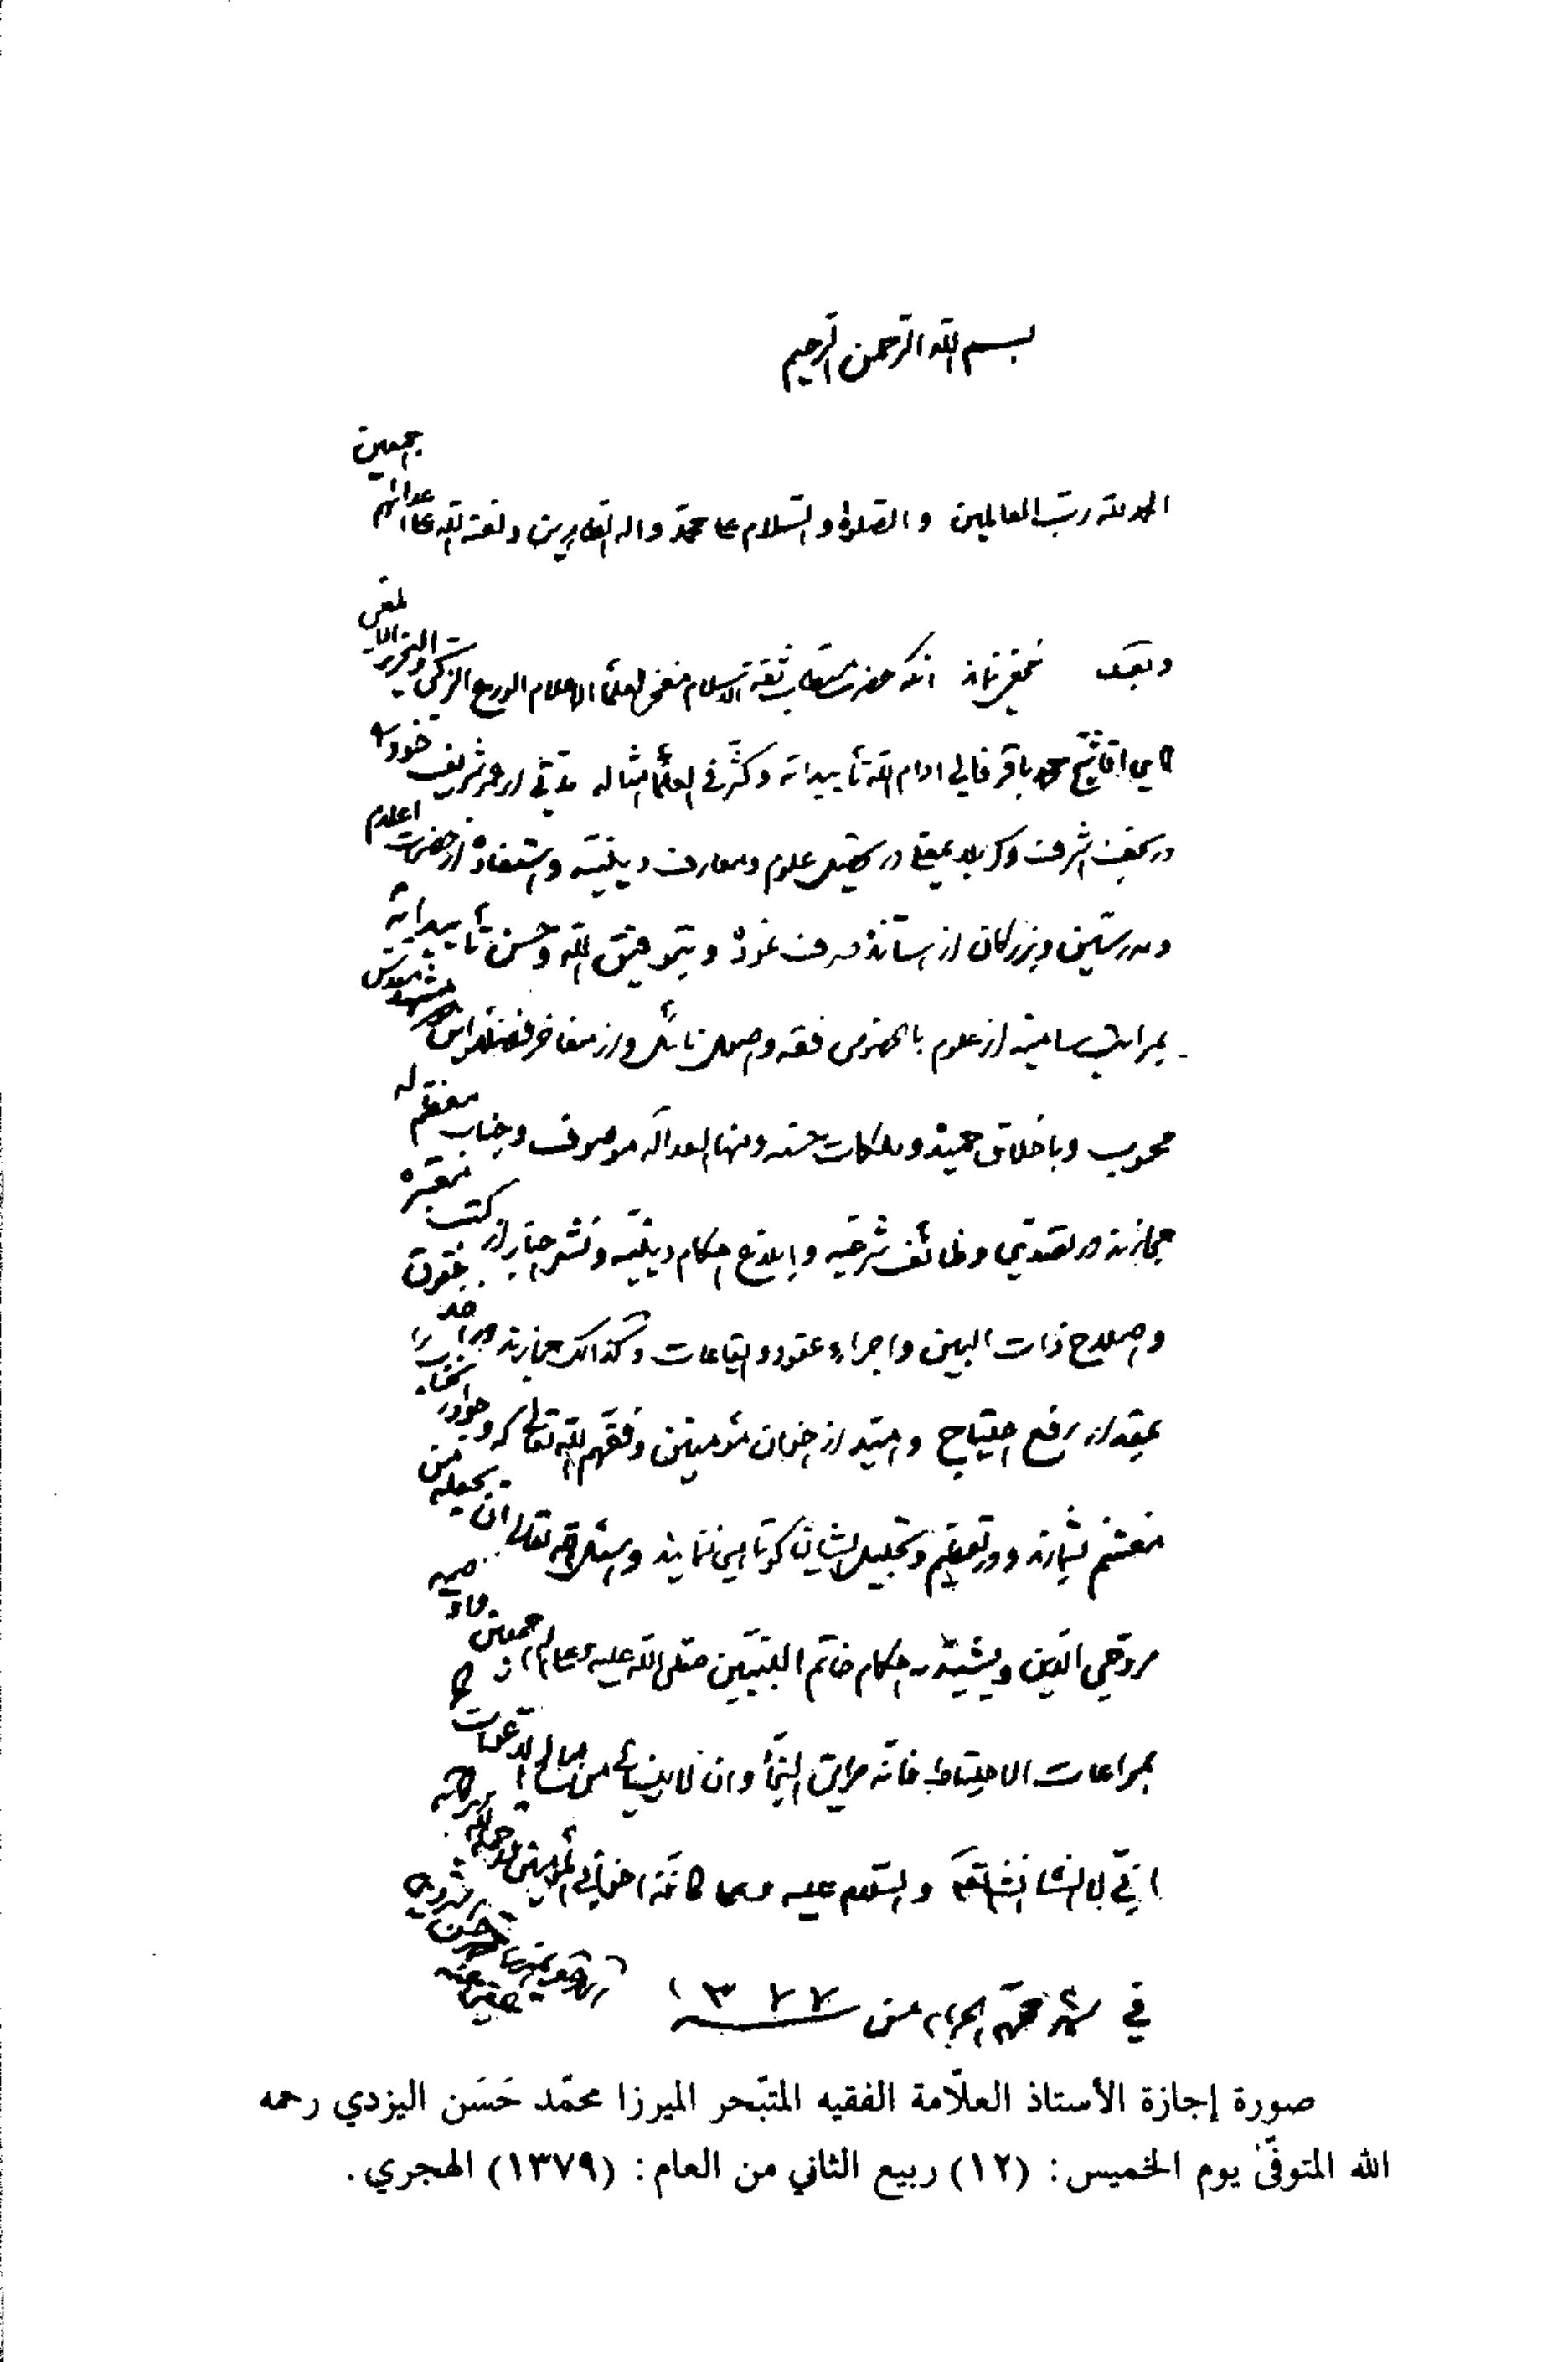 بسم الله الرحمن الرحيم
الحمد لله رب العالمين والصلوة والسلام على محمد واله الطاهرين ولعنة الله على اعدائهم اجمعين
وبعد مخفی نماند آنکه حضرت مستطاب ثقة الاسلام مفخر العلماء الاعلام الورع الزکی والنحریر الالمعی
آقای آقا شیخ محمد باقر فالی ادام الله تأییداته وکثر فی العلماء امثاله مدتی از عمر شریف خود را
در نجف اشرف وکربلا در تحصیل علوم ومعارف دینیه واستفاده از حضرات اعلام
ومدرسین وبزرگان از اساتذه صرف نموده وبتوفیق الله وحسن تأییداته
بمراتب سامیه از علوم بالخصوص فقه واصول نائل واز مفاخر فضلاء
محسوب وباخلاق حمیده وملکات حسنه ومنها العدالة موصوف وجناب معظم له
مجازند در تصدی وظائف شرعیه وابلاغ احکام دینیه ونشر اخبار از کتب معتبره
واصلاح ذات البین واجراء عقود وایقاعات وکذالک مجازند در اخذ
بمقدار رفع احتیاج وامید از اخوان مؤمنین وفقهم الله تعالی که وجود آنجناب را
مغتنم بشمارند ودر تعظیم وتجلیل ایشان کوتاهی ننمایند واسئل الله تعالی ان یجعله من
مروجی الدین ویشید به احکام خاتم النبیین صلی الله علیه وعلی آله اجمعین
بمراعات الاحتیاط فانه طریق النجاة وان لا ینسانی من صالح الدعوات
انی لا انساه انشاء الله والسلام علیه وعلی کافة اخوانی المؤمنین ورحمة الله وبرکاته
في شهر محرم الحرام من ١٣٧٧
صورة إجازة الأستاذ العلّامة الفقيه المتبّحر الميرزا محمّد حَسَن اليزدي رحمه
الله المتوفّىٰ يوم الخميس: (١٢) ربيع الثاني من العام: (١٣٧٩) الهجري.